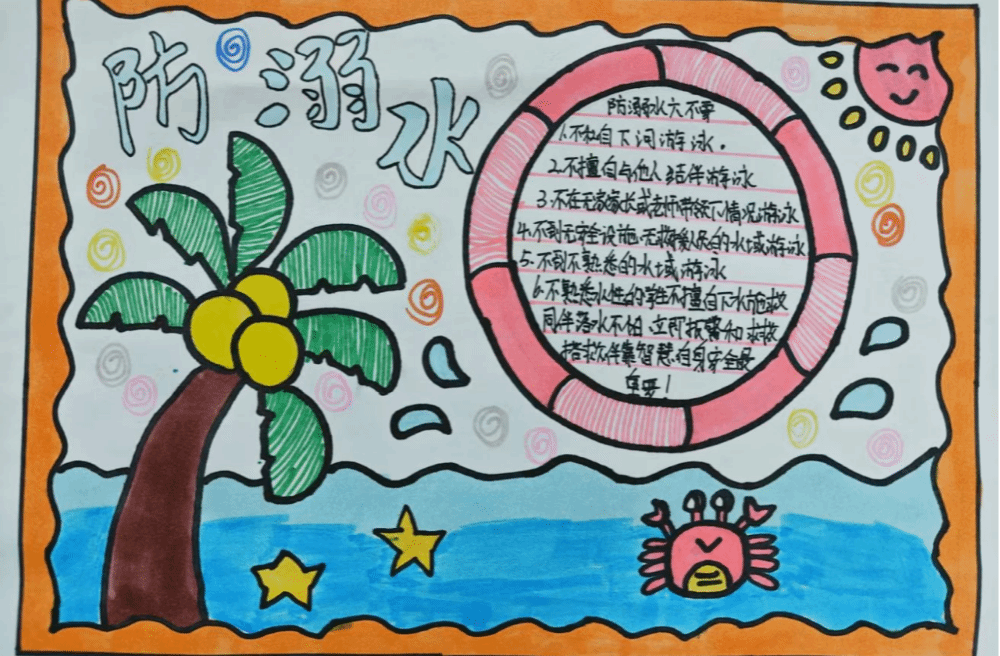 防溺水
防溺水六不要
1.不私自下河游泳.
2.不擅自与他人结伴游泳
3.不在无家长或老师带领下情况游泳
4.不到无安全设施、无救援人员的水域游泳
5.不到不熟悉的水域游泳
6.不熟悉水性的学生不擅自下水施救
同伴落水不怕,立即报警和求救
搭救伴靠智慧,自身安全最
重要!